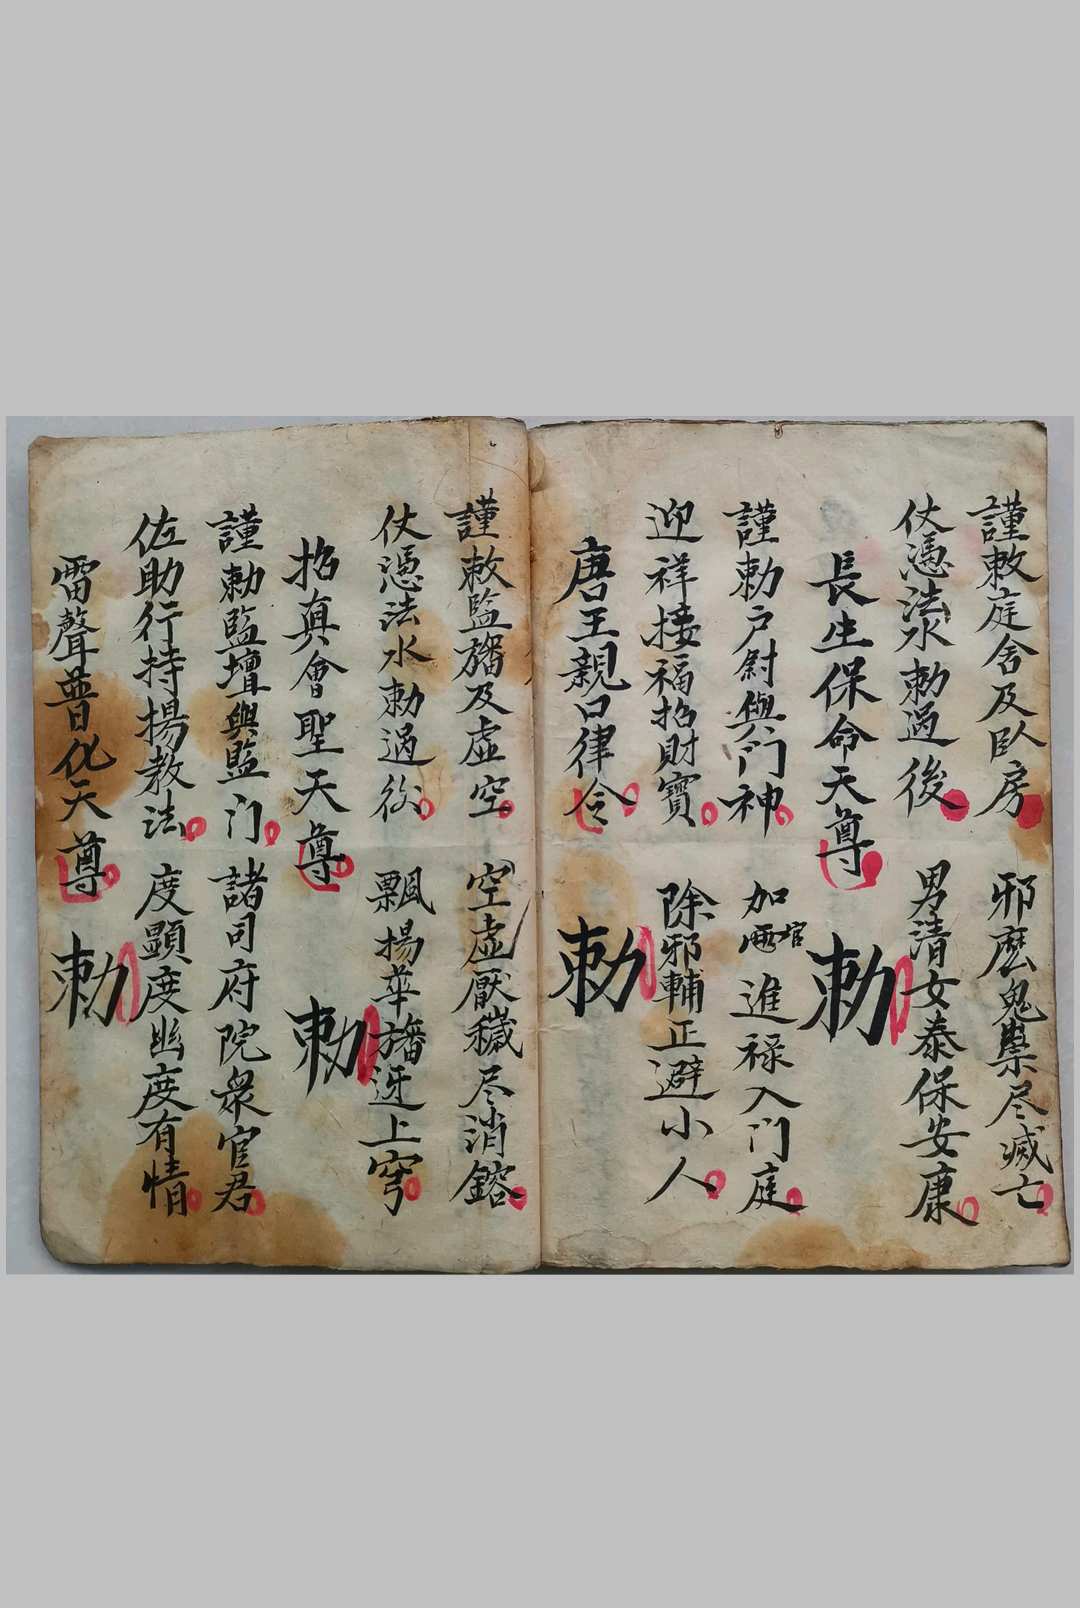 謹敕庭舍及臥房 邪麽鬼祟尽滅亡
仗憑法水勅過後 男清女泰保安康
長生保命天尊 勅
謹勅户尉與門神 加官進祿入門庭
迎祥接福招財寶 除邪輔正避小人
唐王親口律令 勅
謹敕監旛及虚空 空虚厭穢尽消鎔
仗憑法水勅過後 飄揚華旛迓上穹
招真會聖天尊 勅
謹勅監壇與監门 諸司府院衆官君
佐助行持揚教法 度顕度幽度有情
雷聲普化天尊 勅